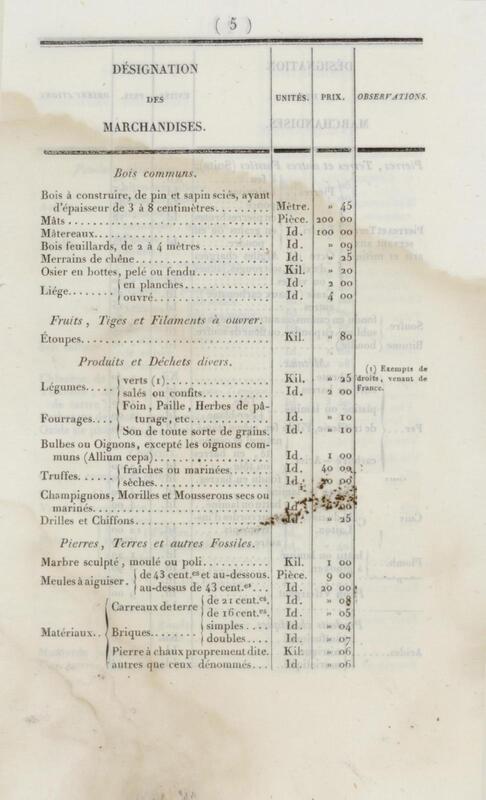 ( 5 )
DÉSIGNATION
DES
MARCHANDISES.
UNITÉS. PRIX. OBSERVATIONS.
Bois communs.
Bois à construire, de pin et sapin sciés, ayant
d'épaisseur de 3 à 8 centimètres......... Mètre. » 45
Mâts.................... Pièce. 200 00
Mâtereaux.................... Id. 100 00
Bois feuillards, de 2 à 4 mètres........... Id. » 09
Merrains de chêne.................... Id. » 25
Osier en bottes, pelé ou fendu............ Kil. » 20
Liége........ { en planches............ Id. 2 00
{ ouvré.................... Id. 4 00
Fruits, Tiges et Filaments à ouvrer.
Étoupes.................... Kil. » 80
Produits et Déchets divers.
Légumes..... { verts (1)................ Kil. » 25
{ salés ou confits........... Id. 2 00
(1) Exempts de
droits, venant de
France.
Fourrages.... { Foin, Paille, Herbes de pâ-
turage, etc................ Id. » 10
{ Son de toute sorte de grains. Id. » 10
Bulbes ou Oignons, excepté les oignons com-
muns (Allium cepa).................... Id. 1 00
Truffes....... { fraîches ou marinées....... Id. 40 00
{ sèches.................... Id. 00
Champignons, Morilles et Mousserons secs ou
marinés.................... Id. 00
Drilles et Chiffons.................... Id. » 25
Pierres, Terres et autres Fossiles.
Marbre sculpté, moulé ou poli............ Kil. 1 00
Meules à aiguiser. { de 43 cent.es et au-dessous. Pièce. 9 00
{ au-dessus de 43 cent.es... Id. 20 00
Matériaux.. { Carreaux de terre { de 21 cent.es. Id. » 08
{ de 16 cent.es. Id. » 05
Briques........ { simples.... Id. » 04
{ doubles.... Id. » 07
Pierre à chaux proprement dite. Kil. » 06
autres que ceux dénommés... Id. » 06